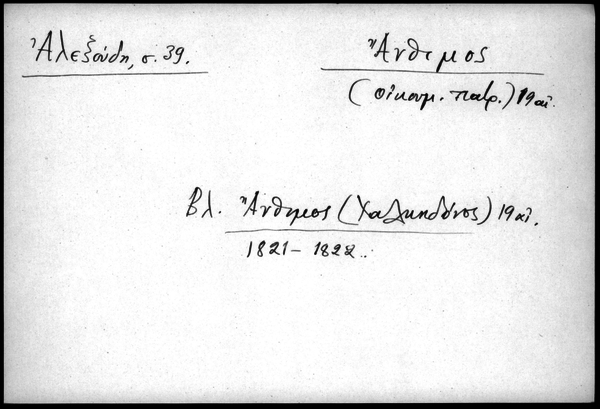 Ἀλεξούδη, σ. 39.
Ἄνθιμος
(οἰκουμ. πατρ.) 19 αἰ.
Βλ. Ἄνθιμος (Χαλκηδόνος) 19 αἰ.
1821 – 1822.